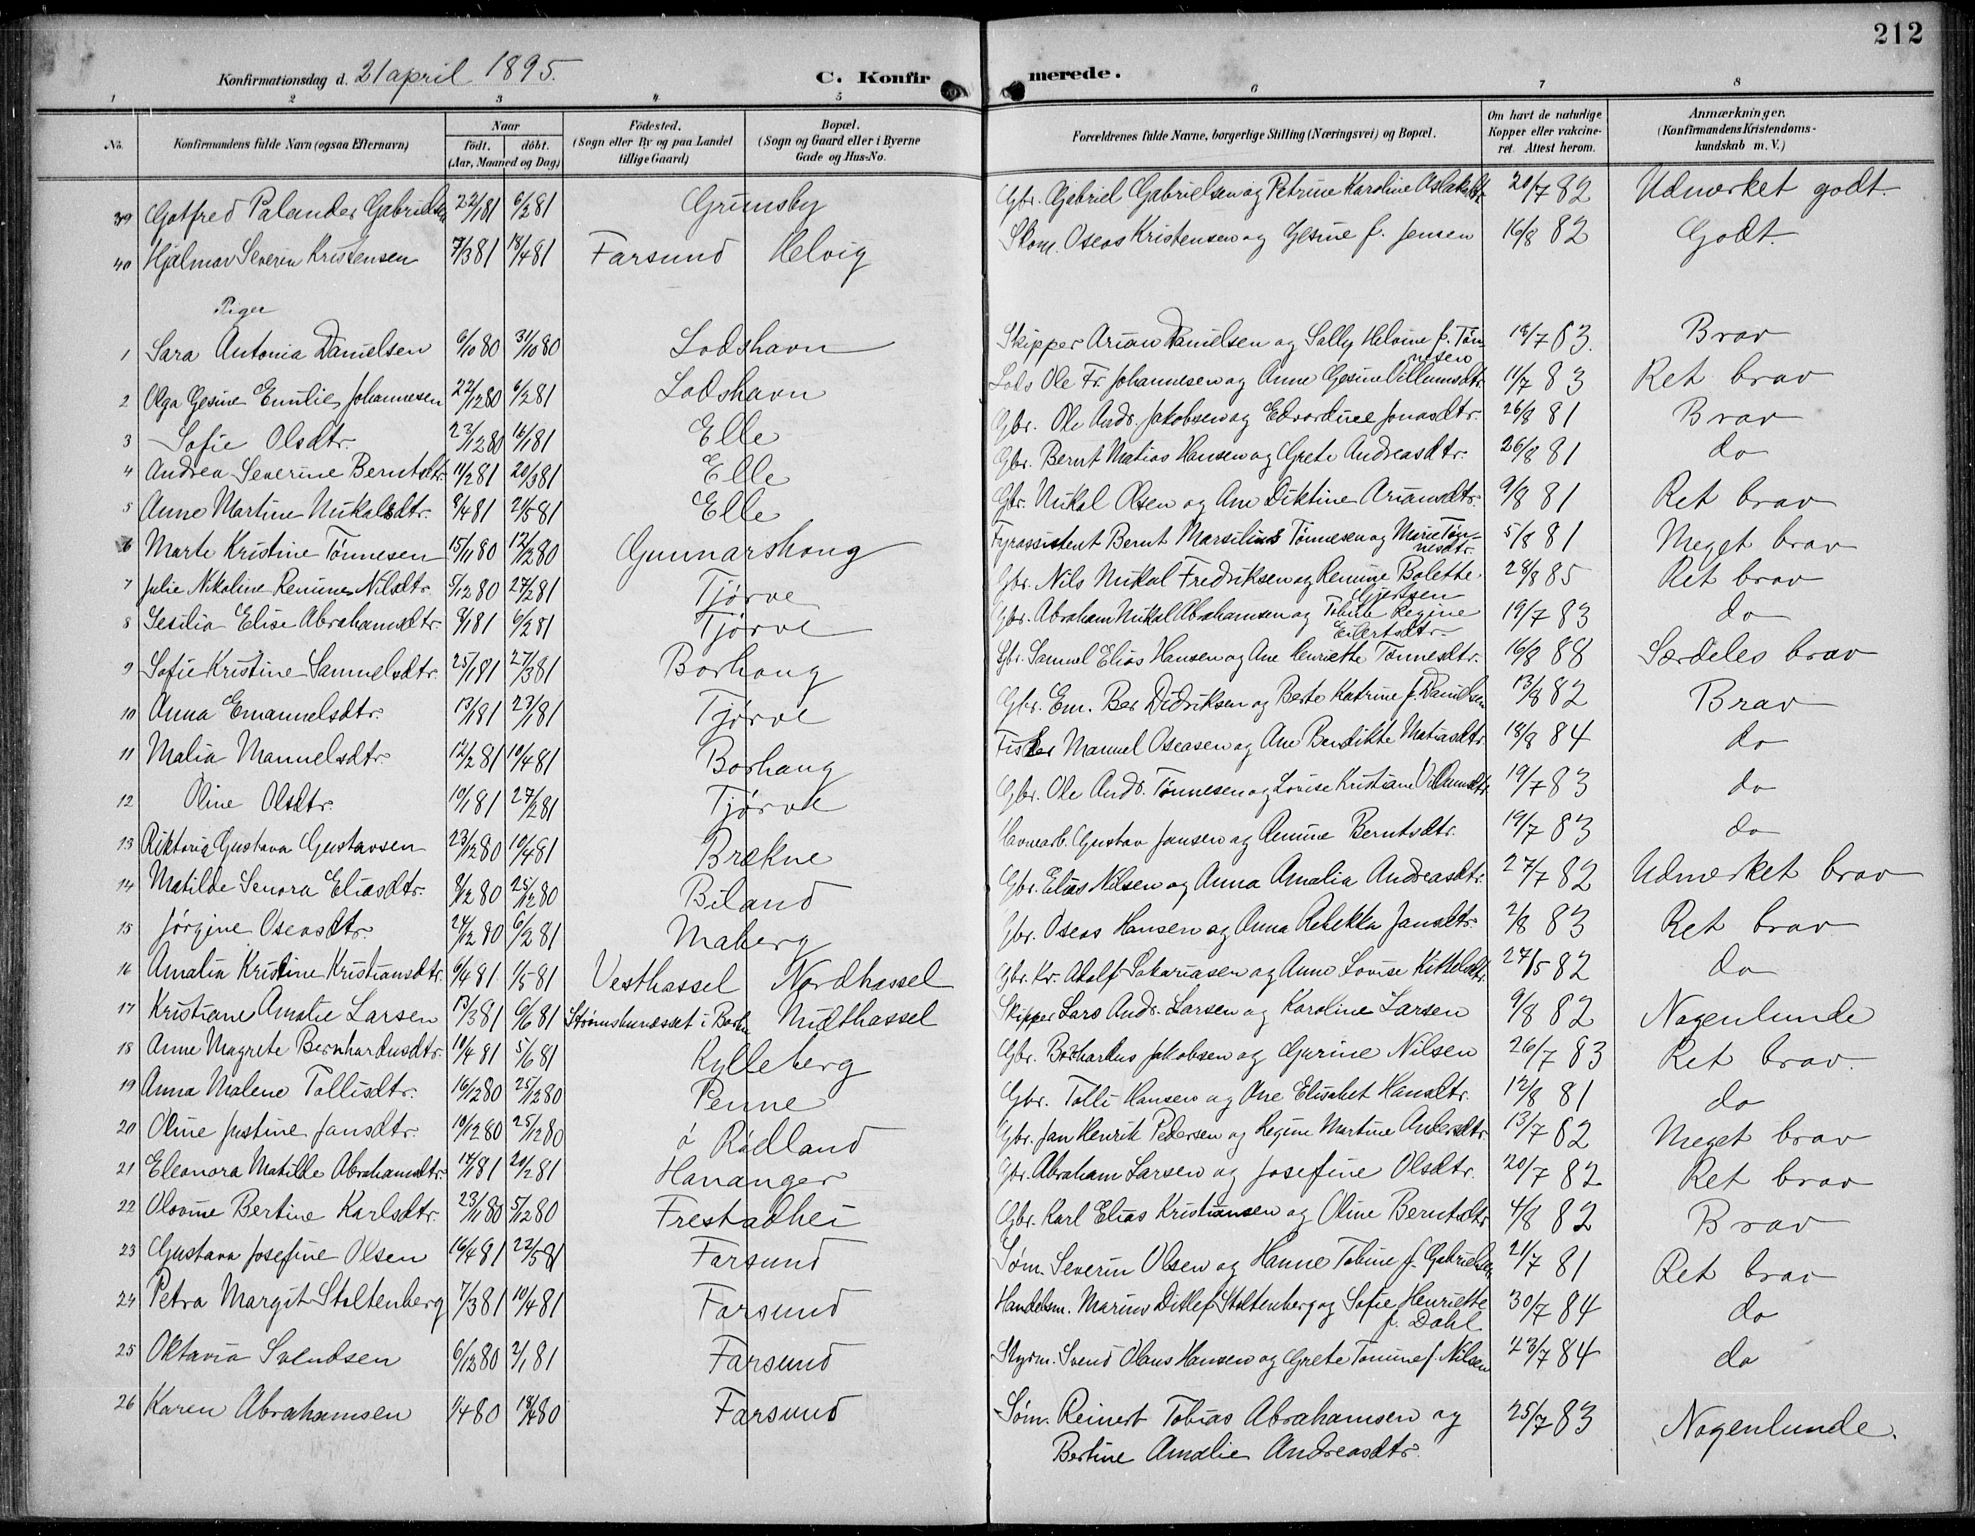 212
Konfirmationsdag d. 21 april 1895.
C. Konfirmerede.
1 2 3 4 5 6 7 8
No. | Konfirmandens fulde Navn (ogsaa Efternavn) | Naar født. døbt. (Aar, Maaned og Dag) | Fødested. (Sogn eller By og paa Landet tillige Gaard) | Bopæl. (Sogn og Gaard eller i Byerne Gade og Hus-No. | Forældrenes fulde Navne, borgerlige Stilling (Næringsvei) og Bopæl. | Om havt de naturlige Kopper eller vakcineret. Attest herom. | Anmærkninger. (Konfirmandens Kristendomskundskab m. V.)
39 Gotfred Palander Gabrielsen 22/1 81 6/2 81 Grimsby Gbr. Gabriel Gabrielsen og Petrine Karoline Aslaksdt 20/7 82 Udmærket godt.
40 Hjalmar Severin Kristensen 7/3 81 18/4 81 Farsund Helvig Skom. Oseas Kristensen og Gesine f. Jensen 16/8 82 Godt.
Piger
1 Sara Antonia Danielsen 6/10 80 31/10 80 Lodshavn Skipper Arian Danielsen og Sally Helvine f. Tønnesen 18/7 83. Brav
2 Olga Gesine Emilie Johannesen 22/12 80 6/2 81 Lodshavn Lods Ole Fr. Johannesen og Anne Gesine Villumsdtr. 11/7 83 Ret brav
3 Sofie Olsdtr. 23/12 80 16/1 81 Elle Gbr. Ole Andr. Jakobsen og Edvardine Jonasdtr. 26/8 81 Brav
4 Andrea Severine Berntsdtr. 11/2 81 20/3 81 Elle Gbr. Bernt Matias Hansen og Grete Andreasdtr. 26/8 81 do
5 Anne Martine Nikalsdtr. 8/4 81 21/5 81 Elle Gbr. Nikal Olsen og Ane Diktine Ariansdtr. 9/8 81 Ret brav
6 Marte Kristine Tønnesen 15/11 80 12/12 80 Gunnarshaug Fyrassistent Bernt Marsilius Tønnesen og Marie Tønnesdtr. 5/8 81 Meget brav
7 Julie Nikoline Remine Nilsdtr. 5/12 80 27/2 81 Tjørve Gbr. Nils Nikal Fredriksen og Remine Bolette Gjertsen 28/8 85 Ret brav
8 Sesilia Elise Abrahamsdtr. 9/1 81 6/2 81 Tjørve Gbr. Abraham Nikal Abrahamsen og Tobine Regine Eilertsdtr. 19/7 83 do
9 Sofie Kristine Samuelsdtr. 25/1 81 27/3 81 Borhaug Gbr. Samuel Elias Hansen og Ane Henriette Tønnesdtr. 16/8 88 Særdeles brav
10 Anna Emanuelsdtr. 13/1 81 23/1 81 Tjørve Gbr. Em. Ber Didriksen og Berte Katrine f. Danielsen 13/8 82 Brav
11 Malia Manuelsdtr. 12/2 81 10/4 81 Borhaug Fisker Manuel Oseasen og Ane Bendikte Matiasdtr 18/8 84 do
12 Oline Olsdtr. 10/1 81 27/2 81 Tjørve Gbr. Ole Andr. Tønnesen og Lovise Kristiane Villumsdtr. 19/7 83 do
13 Riktoria Gustava Gustavsen 23/12 80 10/4 81 Brækne Havnearb. Gustav Jansen og Remine Berntsdtr. 19/7 83 do
14 Matilde Senora Eliasdtr. 9/12 80 25/12 80 Biland Gbr. Elias Nilsen og Anna Amalia Andreasdtr. 27/7 82 Udmærket brav
15 Jørgine Oseasdtr. 24/12 80 6/2 81 Maberg Gbr. Oseas Hansen og Anna Rebekka Jansdtr. 2/8 83 Ret brav
16 Amalia Kristine Kristiansdtr. 6/4 81 1/5 81 Vesthassel Nordhassel Gbr. Kr. Adolf Sakariasen og Anne Lovise Kittelsdtr. 27/5 82 do
17 Kristiane Amalie Larsen 17/3 81 6/6 81 Midthassel Skipper Lars Andr. Larsen og Karoline Larsen 9/8 82 Nogenlunde
18 Anne Magrete Bernhardusdtr. 10/4 81 5/6 81 Kylleberg Gbr. Jakobsen og Gurine Nilsen 26/7 83 Ret brav.
19 Anna Malene Tollisdtr. 16/12 80 25/12 80 Penne Gbr. Tolli Hansen og Ane Elisabet Hansdtr. 12/8 81 do
20 Oline Justine Jansdtr. 10/12 80 25/12 80 ö Rødland Gbr. Jan Henrik Pedersen og Regine Martine Andersdtr. 13/7 82 Meget brav
21 Eleonora Matilde Abrahamsdtr. 17/1 81 20/2 81 Hananger Gbr. Abraham Larsen og Josefine Olsdtr. 20/7 82 Ret brav
22 Olovine Bertine Karlsdtr. 23/11 80 5/12 80 Frestadhei Gbr. Karl Elias Kristiansen og Oline Berntsdtr 4/8 82 Brav
23 Gustava Josefine Olsen 16/4 81 22/5 81 Farsund Søm. Severin Olsen og Hanne Tobine f. Gabrielsen 21/7 81 Ret brav
24 Petra Margit Stoltenberg 7/3 81 10/4 81 Farsund Handelsm. Marius Ditlef Stoltenberg og Sofie Henriette f. Dahl 30/7 84 do
25 Oktavia Svendsen 6/12 80 2/1 81 Farsund Styrm. Svend Olaus Hansen og Grete Tomine f. Nilsen 23/7 84 do
26 Karen Abrahamsen 1/4 80 18/4 80 Farsund Søm. Reinert Tobias Abrahamsen og Bertine Amalie Andreasdtr. 25/7 83 Nogenlunde.